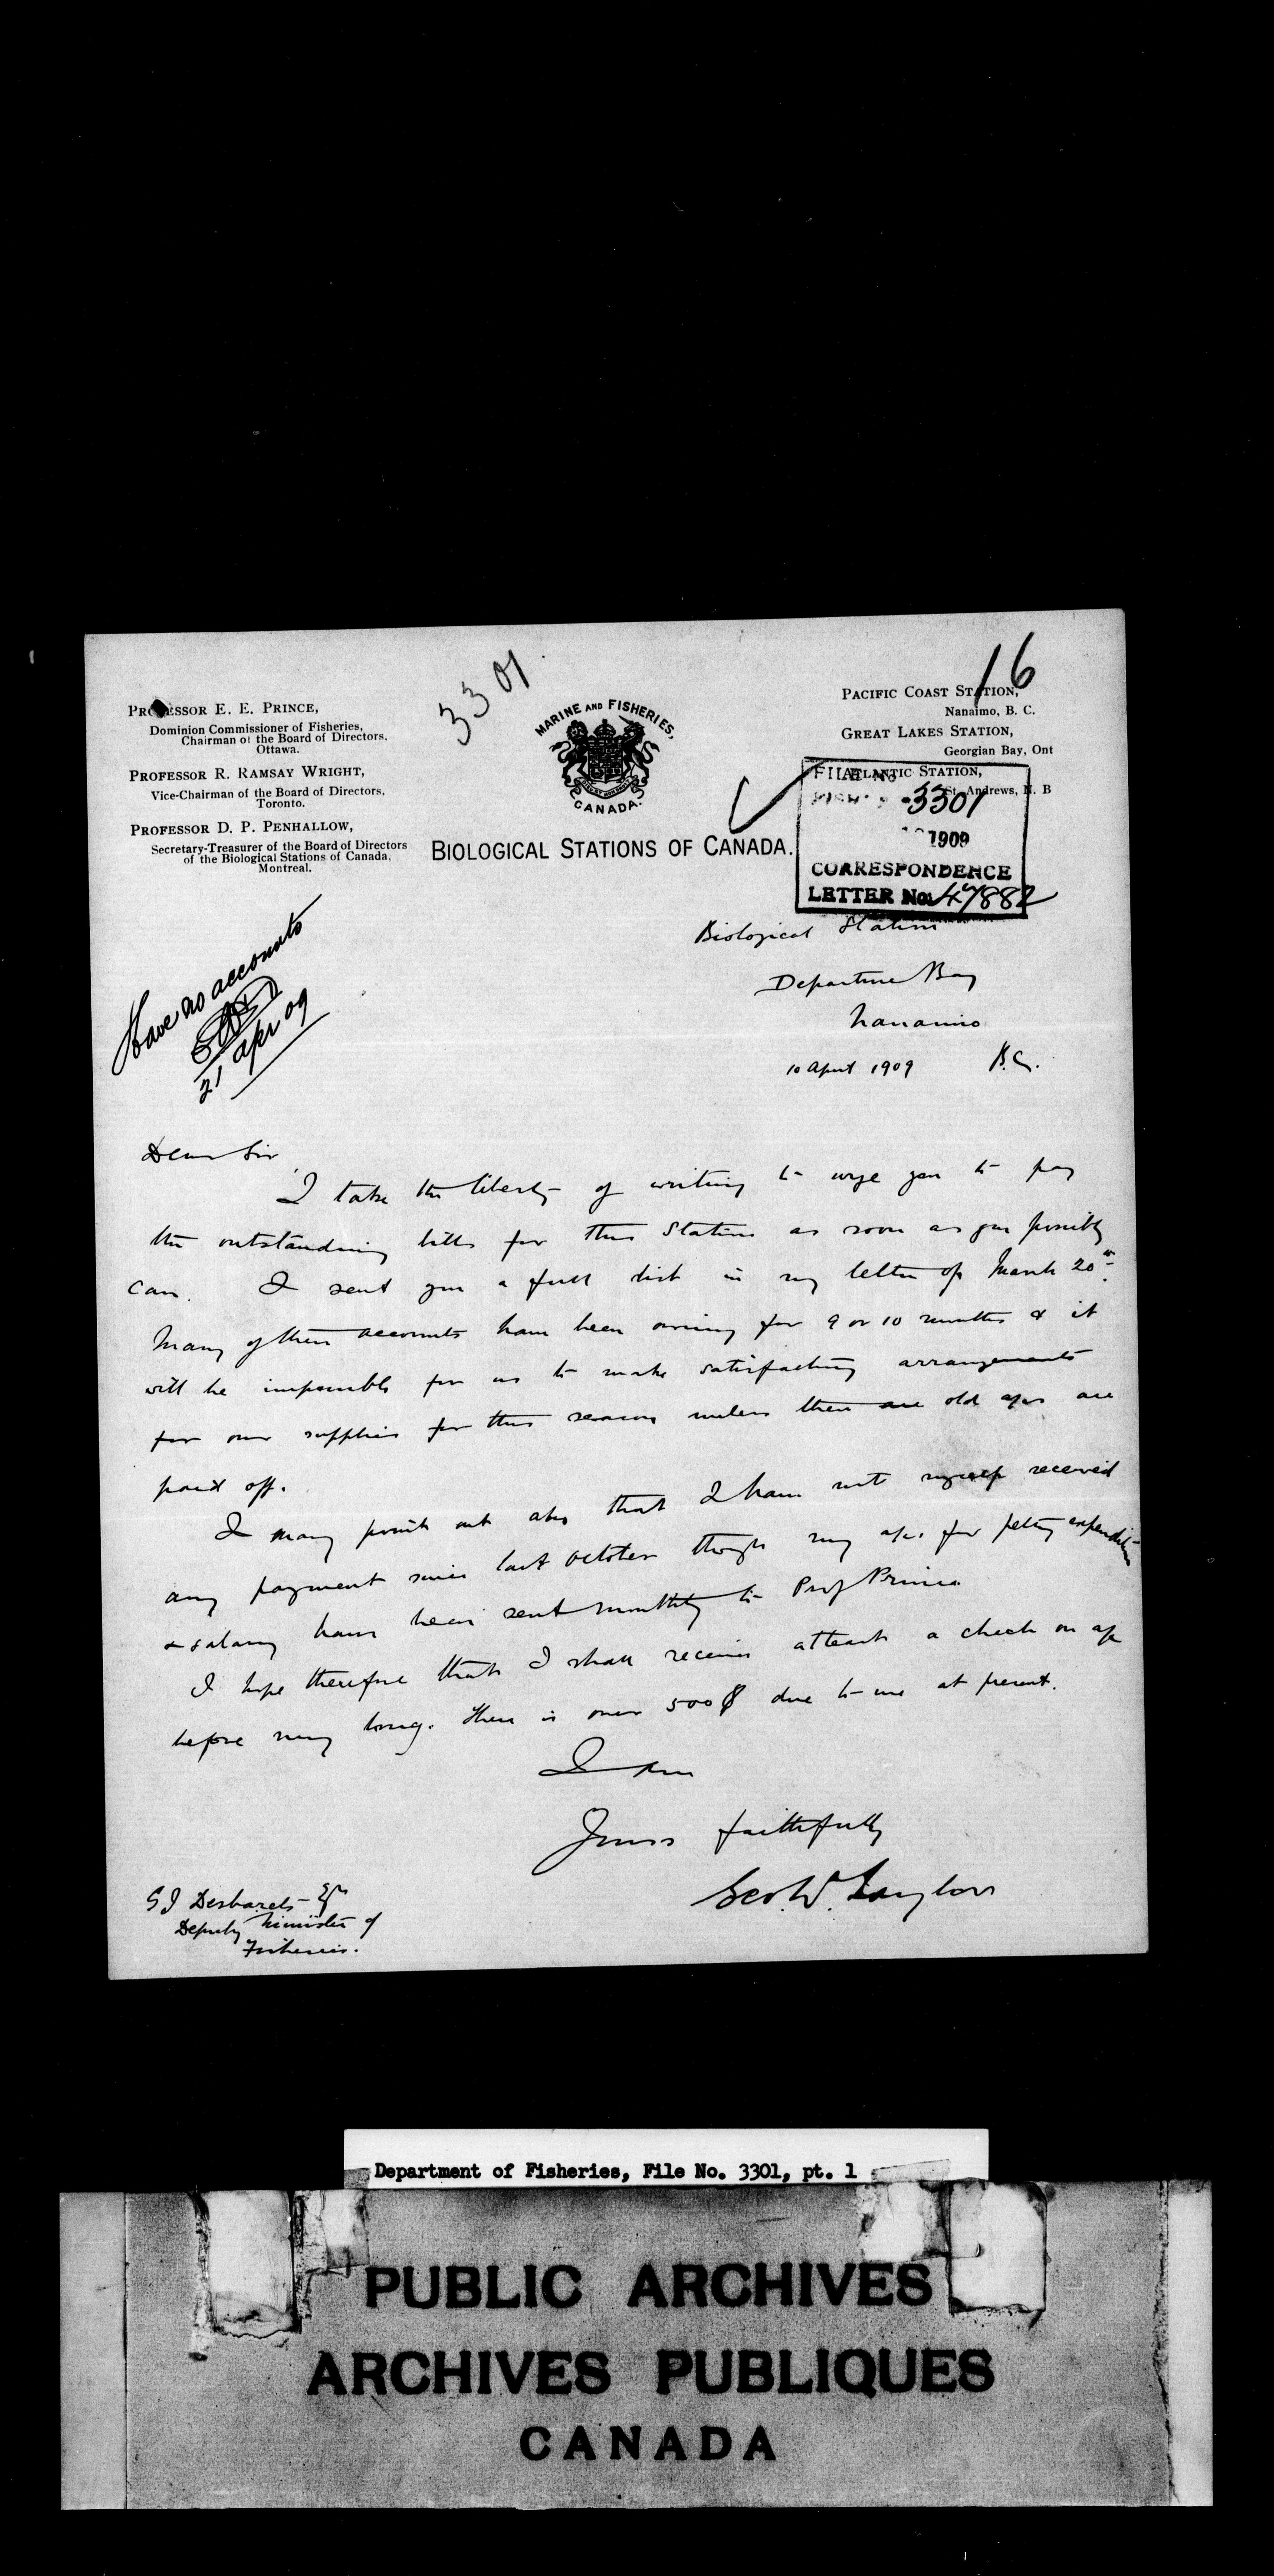 3301
16
PROFESSOR E. E. PRINCE,
Dominion Commissioner of Fisheries,
Chairman of the Board of Directors,
Ottawa.
PROFESSOR R. RAMSAY WRIGHT,
Vice-Chairman of the Board of Directors,
Toronto.
PROFESSOR D. P. PENHALLOW,
Secretary-Treasurer of the Board of Directors
of the Biological Stations of Canada,
Montreal.
MARINE AND FISHERIES,
CANADA.
BIOLOGICAL STATIONS OF CANADA.
PACIFIC COAST STATION,
Nanaimo, B. C.
GREAT LAKES STATION,
Georgian Bay, Ont
ATLANTIC STATION,
St. Andrews, N. B
FILE No
3301
1909
CORRESPONDENCE
LETTER No. 47882
Have no accounts
21 Apr 09
Biological Station
Departure Bay
Nanaimo
10 April 1909 B.C.
Dear Sir
I take the liberty of writing to urge you to pay
the outstanding bills for this Station as soon as you possibly
can. I sent you a full list in my letter of March 20th.
Many of these accounts have been owing for 9 or 10 months & it
will be impossible for us to make satisfactory arrangements
for our supplies for this season unless these are old a/cs are
paid off.
I may point out also that I have not myself received
any payment since last October though my a/cs for petty expenditure
& salary have been sent monthly to Prof Prince
I hope therefore that I shall receive at least a check on a/c
before very long. There is over 500$ due to me at present.
I am
Yours faithfully
Geo. W. Taylor
G J Desbarats Esq
Deputy Minister of
Fisheries.
Department of Fisheries, File No. 3301, pt. 1
PUBLIC ARCHIVES
ARCHIVES PUBLIQUES
CANADA